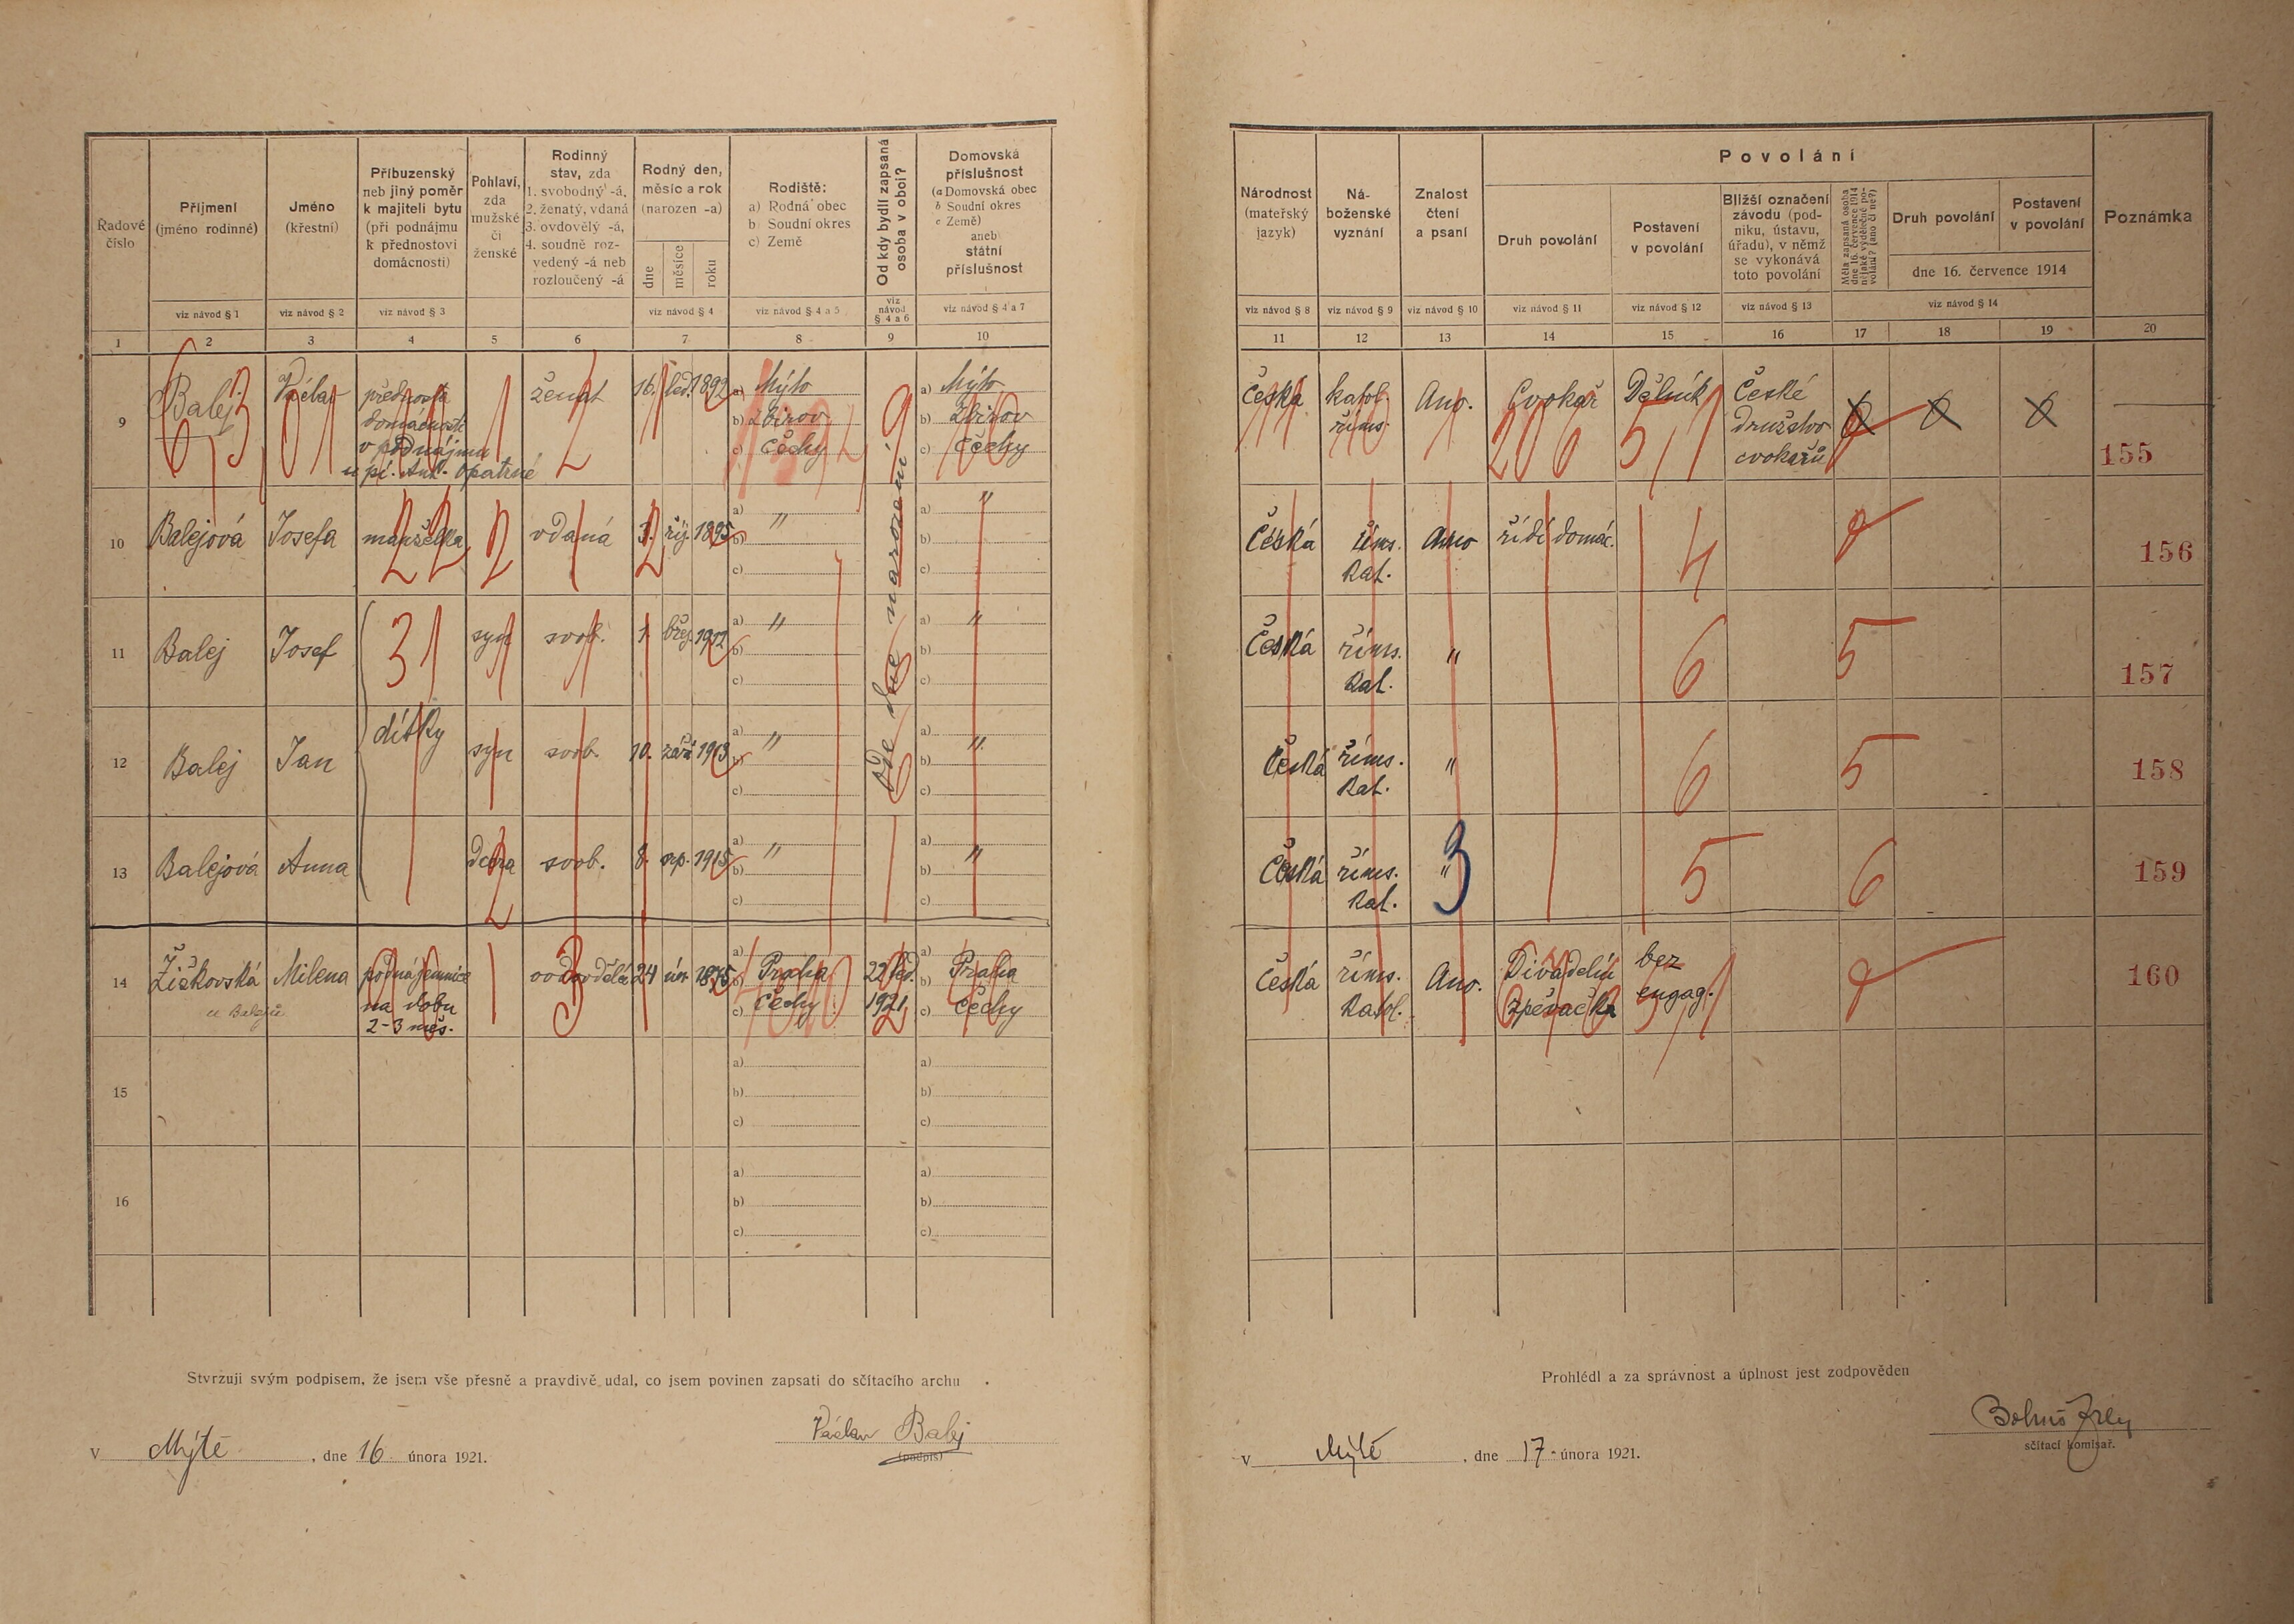 Řadové číslo
Příjmení
(jméno rodinné)
viz návod § 1
Jméno
(křestní)
viz návod § 2
Příbuzenský
neb jiný poměr
k majiteli bytu
(při podnájmu
k přednostovi
domácnosti)
viz návod § 3
Pohlaví,
zda
mužské
či
ženské
Rodinný
stav, zda
1. svobodný -á,
2. ženatý, vdaná
3. ovdovělý -á,
4. soudně roz-
vedený -á neb
rozloučený -á
Rodný den,
měsíc a rok
(narozen -a)
dne
měsíce
roku
viz návod § 4
Rodiště:
a) Rodná obec
b) Soudní okres
c) Země
viz návod § 4 a 5
Od kdy bydlí zapsaná
osoba v obci?
viz
návod
§ 4 a 6
Domovská
příslušnost
(a Domovská obec
b Soudní okres
c Země)
aneb
státní
příslušnost
viz návod § 4 a 7
1 2 3 4 5 6 7 8 9 10
9 Balej Václav přednosta ženat 16. led. 1892 a) Mýto a) Mýto
domácnosti b) Zbirov b) Zbirov
v podnájmu c) Čechy c) Čechy
u pí. Ant. Opatrné
10 Balejová Josefa manželka vdaná 3. říj. 1895 a) " a) "
b) b)
c) c)
11 Balej Josef syn svob. 1. břez. 1912 a) " a) "
b) b)
c) c)
dítky
12 Balej Jan syn svob. 10. září 1913 a) " a) "
b) b)
c) c)
13 Balejová Anna dcera svob. 8. srp. 1915 a) " a) "
b) b)
c) c)
ode dne narození
14 Žičkovská Milena podnájemnice ovdovělá 24 ún. 1875 a) Praha 22 led. a) Praha
u Balejů na dobu b) b)
2-3 měs. c) Čechy 1921 c) Čechy
15 a) a)
b) b)
c) c)
16 a) a)
b) b)
c) c)
Stvrzuji svým podpisem, že jsem vše přesně a pravdivě udal, co jsem povinen zapsati do sčítacího archu
v Mýtě, dne 16 února 1921.
Václav Balej
(podpis)
Národnost
(mateřský
jazyk)
viz návod § 8
Ná-
boženské
vyznání
viz návod § 9
Znalost
čtení
a psaní
viz návod § 10
Povolání
Druh povolání
viz návod § 11
Postavení
v povolání
viz návod § 12
Bližší označení
závodu (pod-
niku, ústavu,
úřadu), v němž
se vykonává
toto povolání
viz návod § 13
Měla zapsaná osoba
dne 16. července 1914
nějaké výdělečné po-
volání? (ano či ne?)
Druh povolání
Postavení
v povolání
dne 16. července 1914
viz návod § 14
Poznámka
11 12 13 14 15 16 17 18 19 20
Česká katol. Ano. Cvokař Dělník České
říms. družstvo
cvokařů 155
Česká říms. Ano řídí domác. 4 156
kat.
Česká říms. " 6 5 157
kat.
Česká říms. " 6 5 158
kat.
Česká říms. " 3 5 6 159
kat.
Česká říms. Ano. Divadelní bez 160
katol. zpěvačka engag.
Prohlédl a za správnost a úplnost jest zodpověden
v Mýtě, dne 17. února 1921.
sčítací komisař.